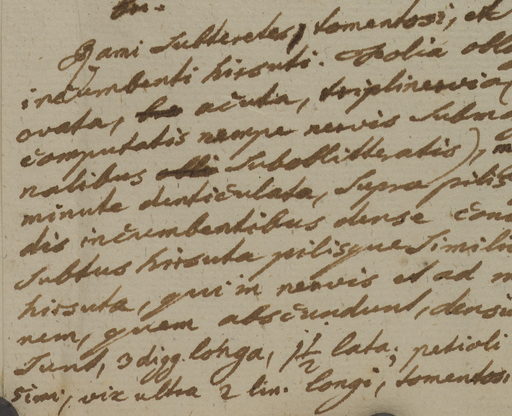 Rami subteretes, tomentosi, et
incumbenti hirsuti. Folia obl
ovata, acuta, triplinervia (
computatis nempe nervis submar
nalibus suboblitteratis),
minute denticulata, supra pilis
dis incumbentibus dense cons
subtus hirsuta pilisque simili
hirsuta, qui in nervis et ad m
nem, quem abscundunt, densi
sunt, 3 digg. longa, 1 1/2 lata; petioli
simi, vix ultra 2 lin. longi, tomentosi